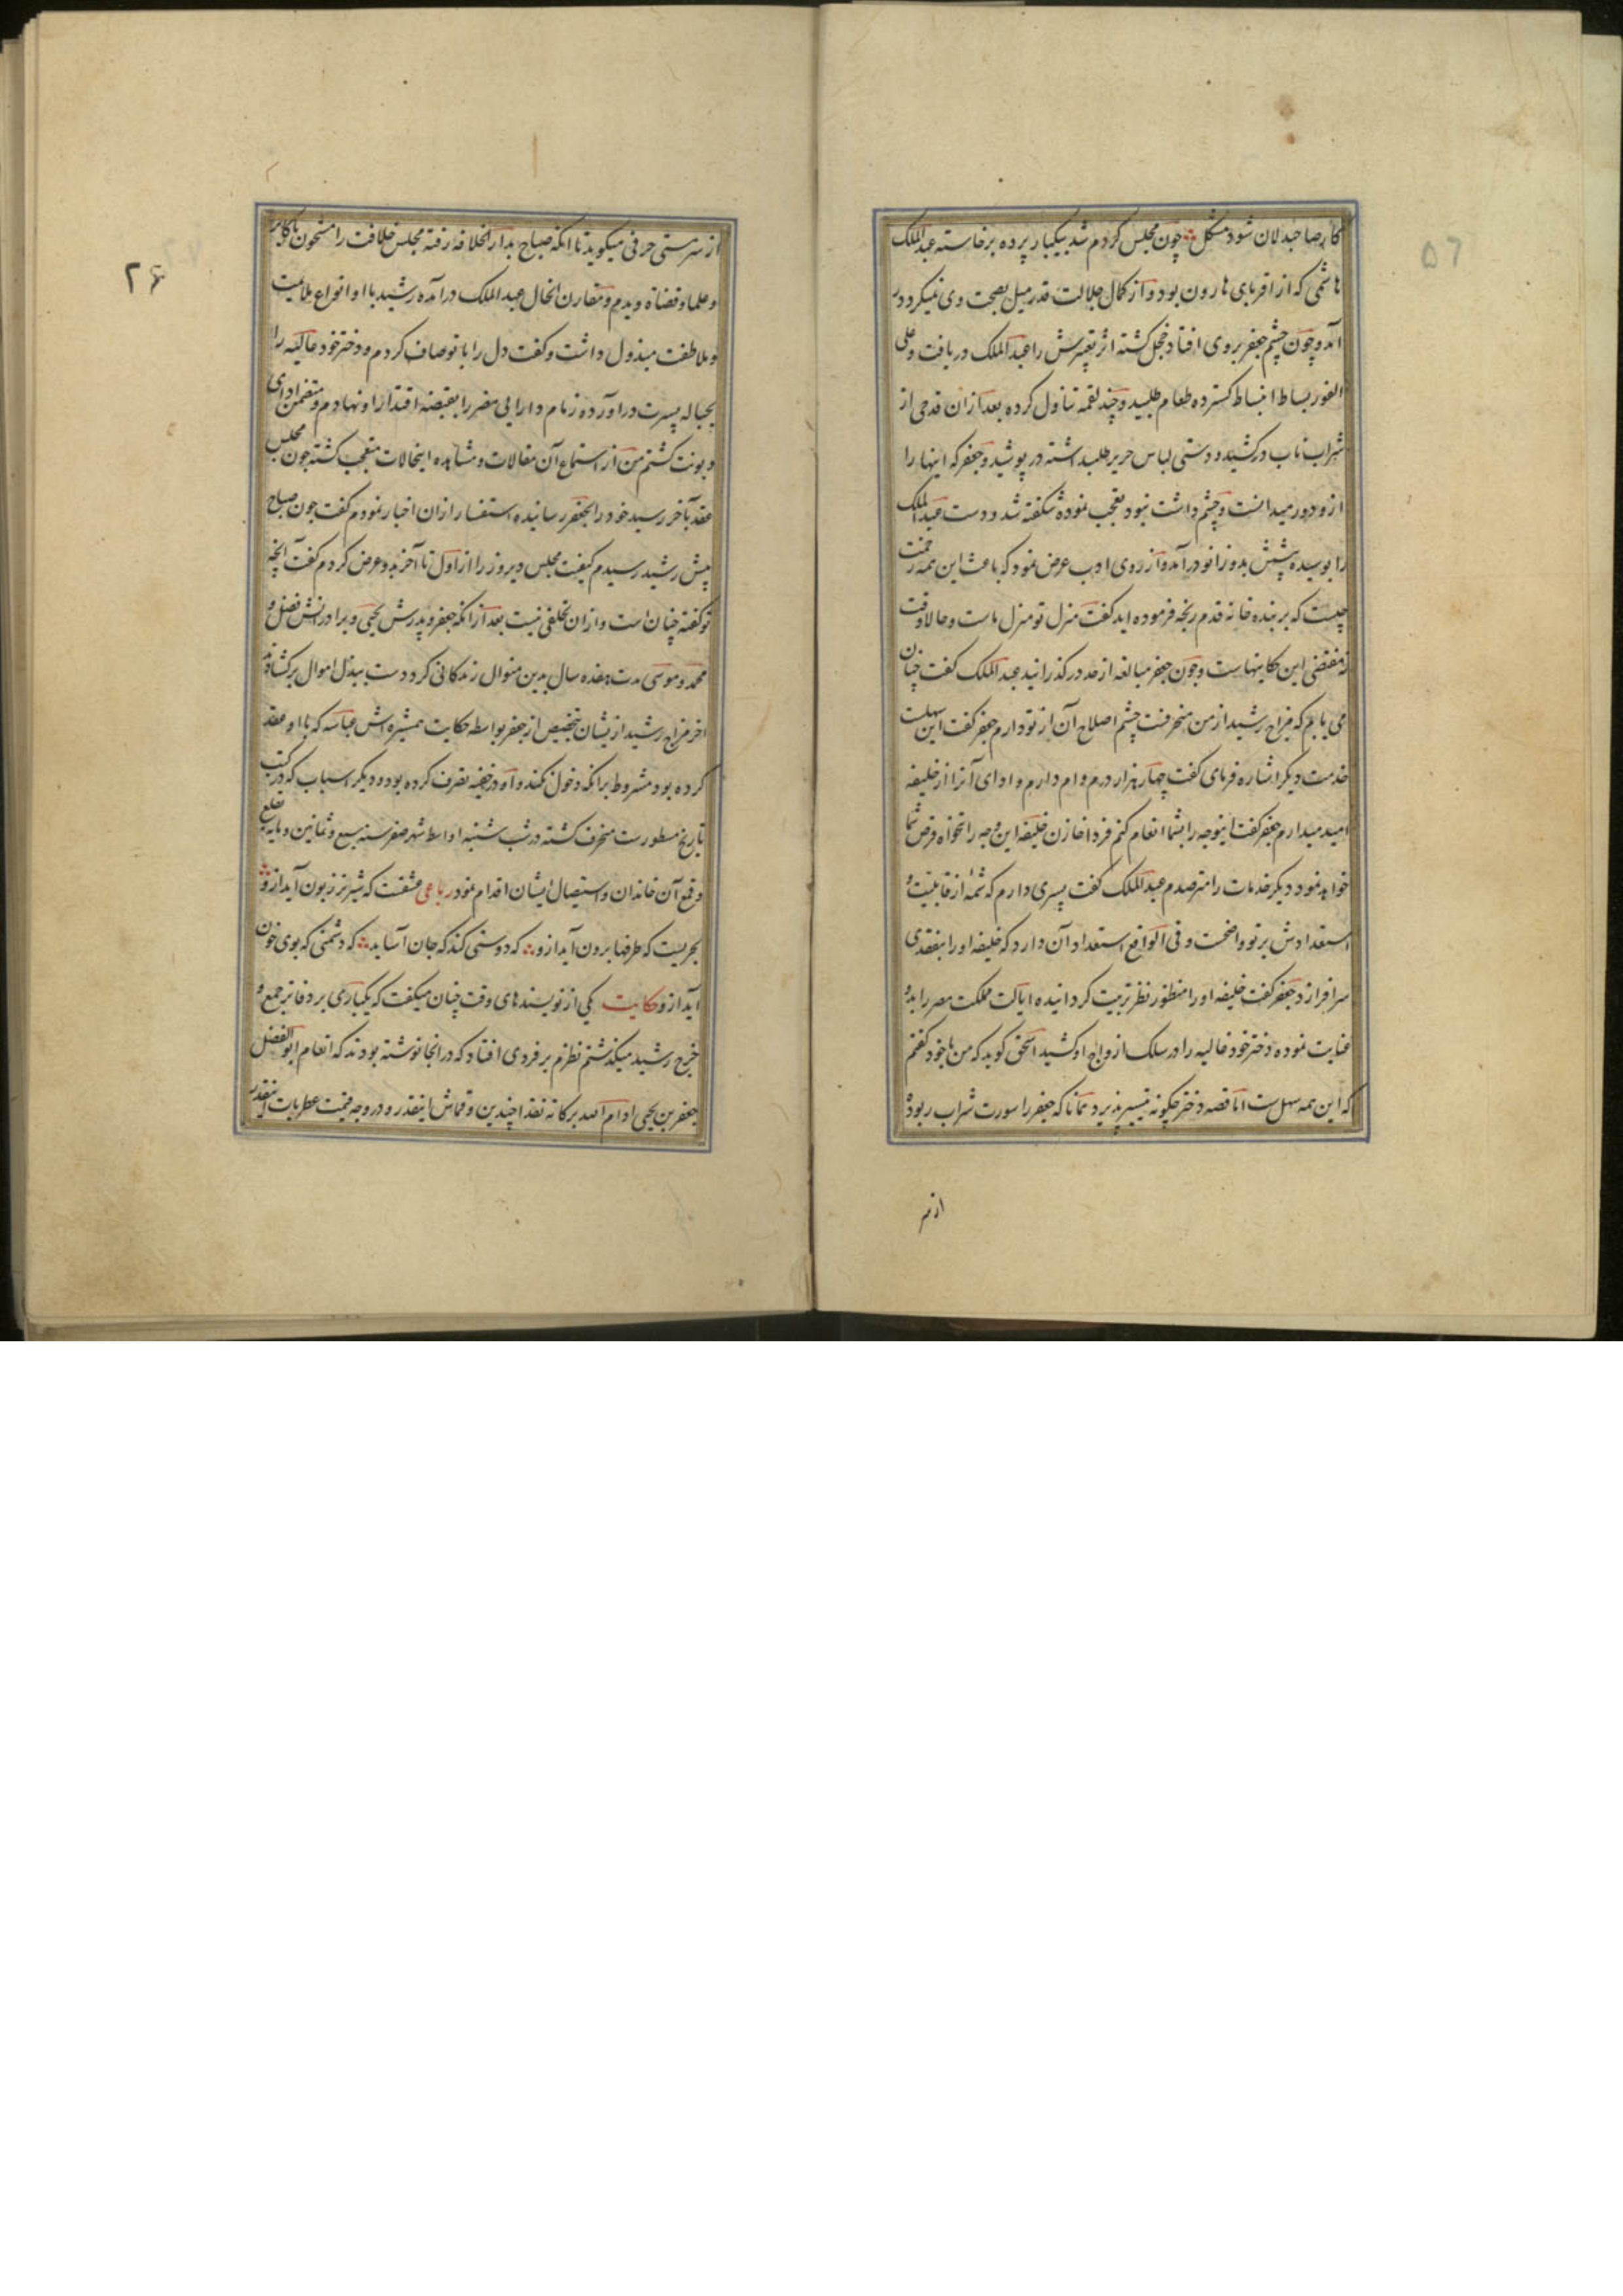 ۵۶
کار صاحبدلان شود مشکل چون مجلس گرم شد بیکبار پرده برخاسته عبدالملک
هاشمی که از اقربای هارون بود و از کمال جلالت قدر میل بصحبت وی نمیکرد در
آمد و چون چشم جعفر بروی افتاد خجل کشته اثر تغییرش را عبدالملک دریافت و علی
الفور بساط انبساط کسترده طعام طلبید و چند لقمه تناول کرده بعد از ان قدحی از
شراب ناب درکشید و دستی لباس حریر طلب داشته در پوشید و جعفر که اینها را
از و دور میدانست و چشم داشت نبود تعجب نموده شکفته شد و دست عبدالملک
را بوسیده پیشش بدو زانو درآمد و از روی ادب عرض نمود که باعث این همه زحمت
چیست که بر بنده خانه قدم رنجه فرموده اید کفت منزل تو منزل ماست و حالا وقت
نه مقتضی این حکایتهاست و چون جعفر مبالغه از حد درکذرانید عبدالملک کفت چنان
می یابم که مزاج رشید از من منحرفست چشم اصلاح آن از تو دارم جعفر کفت این سهلست
خدمت دیکر اشاره فرمای کفت چهار هزار درم وام دارم و ادای آنرا از خلیفه
امید میدارم جعفر کفت اینوجه را بشما انعام کنم فردا خازن خلیفه این وجه را بتنخواه قرض شما
خواهد نمود دیکر خدمات را مترصدم عبدالملک کفت پسری دارم که شمهٔ از قابلیت و
استعدادش بر تو واضحست و فی الواقع استعداد آن دارد که خلیفه او را بتفقدی
سرافرازد جعفر کفت خلیفه او را منظور نظر تربیت کردانیده ایالت مملکت مصر را بدو
عنایت نموده دختر خود عالیه را در سلک ازواج او کشید اسحق کوید که من با خود کفتم
که این همه سهل ست اما قصه دختر چکونه تیسیر پذیرد همانا که جعفر را سورت شراب ربوده
از سر
۲۶
از سر مستی حرفی میکوید تا انکه صباح بدار الخلافه رفته مجلس خلافت را مشحون باکابر
و علما و قضاة دیدم و مقارن انحال عبدالملک درآمده رشید با او انواع ملایمت
و ملاطفت مبذول داشت و کفت دل را با تو صاف کردم و دختر خود عالیه را
بحباله پسرت در آورده زمام دارایی مصر را بقبضه اقتدار او نهادم و متضمن ادای
دیونت کشتم من از استماع آن مقالات و مشاهده اینحالات متعجب کشته چون مجلس
عقد بآخر رسید خود را بجعفر رسانیده استفسار ازان اخبار نمودم کفت چون صباح
پیش رشید رسیدم کیفیت مجلس دیروز را از اول تا آخر بدو عرض کردم کفت آنچه
تو کفته چنان است و ازان تخلفی نیست بعد از انکه جعفر و پدرش یحیی و برادرانش فضل و
محمد و موسی مدت هفده سال بدین منوال زندکانی کرد دست ببذل اموال برکشادند
اخر مزاج رشید ازیشان بتخصیص از جعفر بواسطه حکایت همشیره اش عباسه که با او عقد
کرده بود مشروط برانکه دخول نکند و او در خفیه تصرف کرده بود و دیکر اسباب که در کتب
تاریخ مسطورست منحرف کشته در شب شنبه اواسط شهر صفر سنه سبع و ثمانین و مایه بقلع
و قمع آن خاندان و استیصال ایشان اقدام نمود رباعی عشقست که شیر نر زبون آید ازو
بحریست که طرفها برون آید ازو که دوستی کند که جان آساید که دشمنی که بوی خون
آید ازو حکایت یکی از نویسندهای وقت چنان میکفت که یکباری بر دفاتر جمع و
خرج رشید میکذشتم نظرم بر فردی افتاد که در انجا نوشته بودند که انعام ابو الفضل
جعفر بن یحیی ادام الله برکاته نقدا چندین و قماش اینقدر و در وجه قیمت عطریات اینقدر